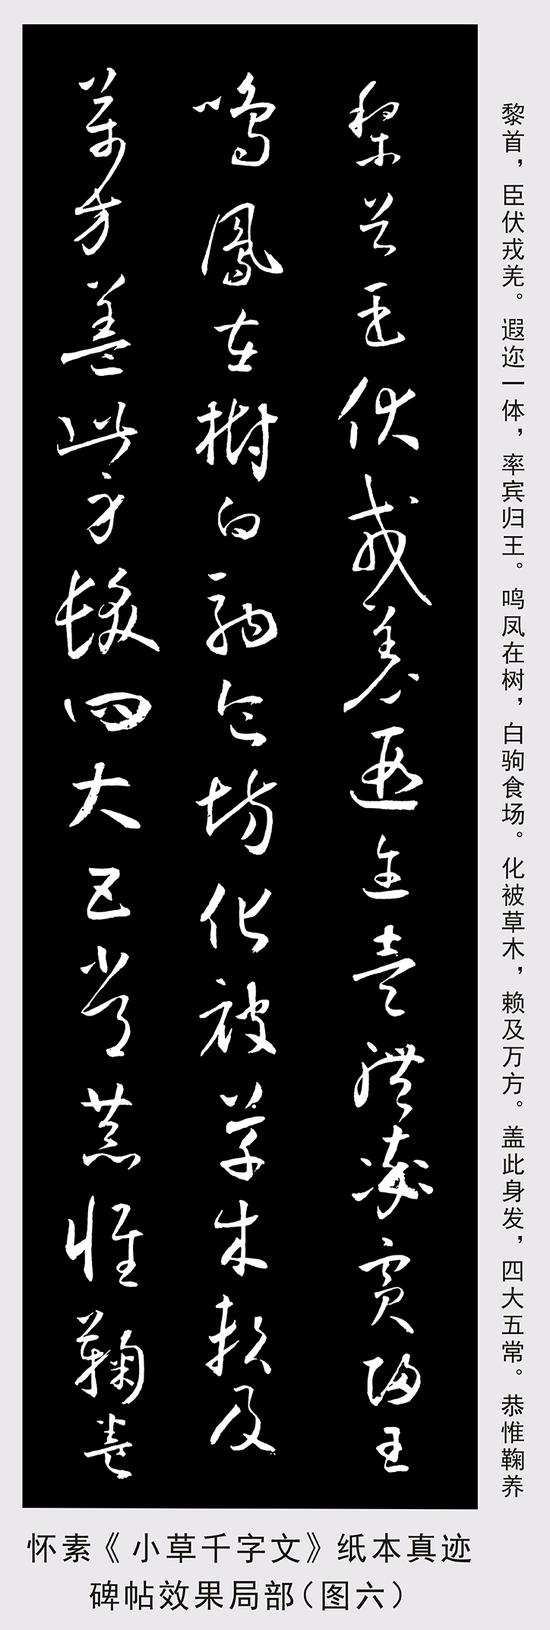 黎首，臣伏戎羌。遐迩一体，率宾归王。鸣凤在树，白驹食场。化被草木，赖及万方。盖此身发，四大五常。恭惟鞠养
黎首臣伏戎羌遐迩壹體率賓歸王
鳴鳳在樹白駒食場化被草木賴及
萬方蓋此身髮四大五常恭惟鞠養
怀素《小草千字文》纸本真迹
碑帖效果局部（图六）